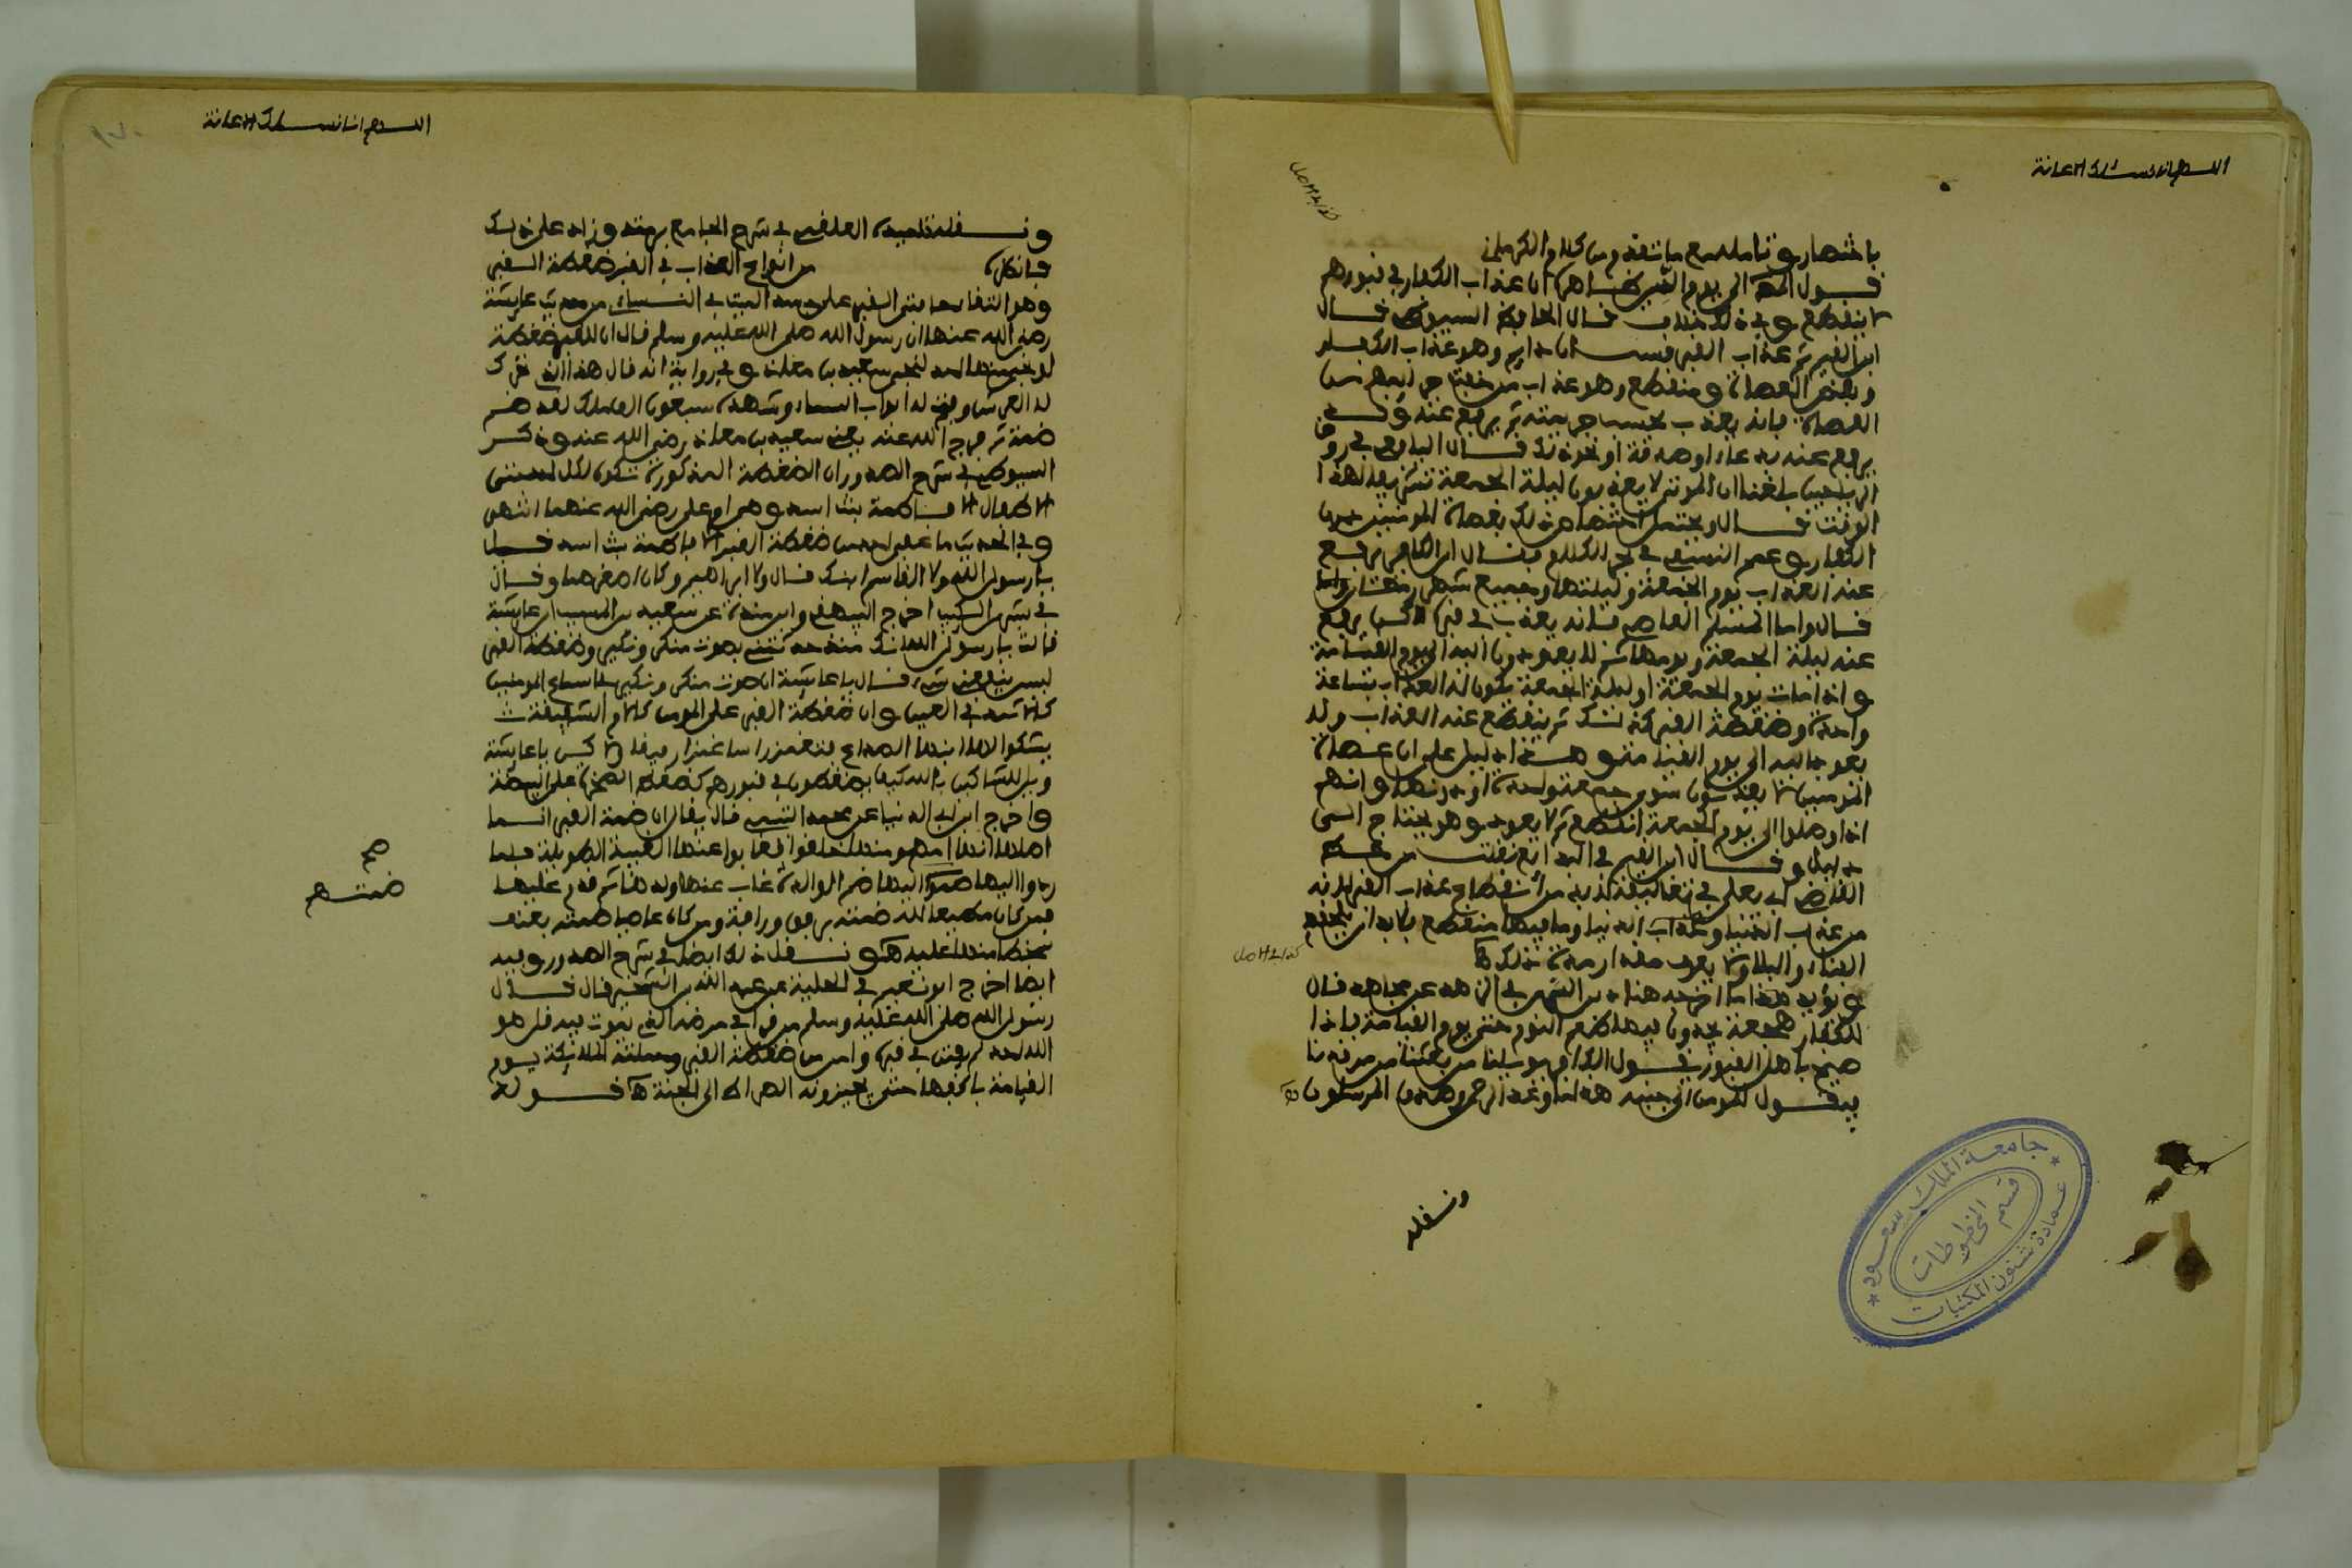 اللهم انا نسئلك الاعانة
باختصار وتامله مع ما تقدم من كلام الكرماني
قوله الى يوم القيمة ظاهره ان عذاب الكفار في قبورهم
لا ينقطع وفي ذلك خلاف قال الحافظ السيوطي قال
ابن القيم ثم عذاب القبر قسمان دايم وهو عذاب الكفار
وبعض العصاة ومنقطع وهو عذاب من خفت جرايمهم من
العصاة فانه يعذب بحسب جريمته ثم يرفع عنه وقد
يرفع عنه بدعاء او صدقة او نحو ذلك قال اليافعي في روض
الرياحين بلغنا ان الموتى لا يعذبون ليلة الجمعة تشريفا لهذا
الوقت قال ويحتمل اختصاص ذلك بعصاة المومنين دون
الكفار وعمم النسفي في بحر الكلام فقال ان الكافر يرفع
عنه العذاب يوم الجمعة وليلتها وجميع شهر رمضان
قال واما المسلم العاصي فانه يعذب في قبره لاكن يرفع
عنه ليلة الجمعة ويومها ثم لا يعود اليه الى يوم القيامة
وان مات يوم الجمعة او ليلة الجمعة يكون له العذاب ساعة
واحدة وضغطة القبر كذلك ثم ينقطع عنه العذاب ولا
يعود اليه الى يوم القيامة وهذا دليل على ان عصاة
المومنين لا يعذبون سوى جمعة واحدة او دونها وانهم
اذا وصلوا الى يوم الجمعة انقطع ثم لا يعود وهو يحتاج الى
دليل وقال ابن القيم في البدايع نقلت من خط
القاضي ابي يعلى في تعاليقه لا بد من انقطاع عذاب القبر لانه
من عذاب الدنيا وعذاب الدنيا وما فيها منقطع ولا بد ان يلحقهم
الفناء والبلا ولا يعرف مقدار مدة ذلك
ويؤيد هذا ما اخرجه هناد بن السري في الزهد عن مجاهد قال
للكفار هجعة يجدون فيها طعم النوم حتى يوم القيامة فاذا
صيح باهل القبور يقول الكافر يا ويلنا من بعثنا من مرقدنا
فيقول المومن الى جنبه هذا ما وعد الرحمن وصدق المرسلون
ونقله
اللهم انا نسئلك الاعانة
ونقله تلميذه العلقمي في شرح الجامع برمته وزاد على ذلك
فائدة من انواع العذاب في القبر ضغطة القبر
وهو التقاء حافتي القبر على جسد الميت في النسائي من حديث عايشة
رضي الله عنها ان رسول الله صلى الله عليه وسلم قال ان للقبر ضغطة
لو نجى منها احد لنجى سعد بن معاذ وفي رواية انه قال هذا الذي تحرك
له العرش وفتحت له ابواب السماء وشهده سبعون الف ملك لقد ضم
ضمة ثم فرج الله عنه يعني سعد بن معاذ رضي الله عنه وذكر
السيوطي في شرح الصدور ان الضغطة المذكورة تكون لكل احد حتى
الاطفال الا فاطمة بنت اسد وهي ام علي رضي الله عنهما انتهى
وفي الحديث ما عفي احد من ضغطة القبر الا فاطمة بنت اسد قيل
يا رسول الله ولا القاسم ابنك قال ولا ابراهيم وكان اصغرهما وقال
في بشرى الكئيب اخرج البيهقي وابن مندة عن سعيد بن المسيب ان عايشة
قالت يا رسول الله انك منذ حدثتني بصوت منكر ونكير وضغطة القبر
ليس ينفعني شيء قال يا عايشة ان صوت منكر ونكير في اسماع المومنين
كالاثمد في العين وان ضغطة القبر على المومن كالام الشفيقة
يشكوا اليها ابنها الصداع فتغمز راسه غمزا رفيقا لاكن يا عايشة
ويل للشاكين بالله كيف يضغطون في قبورهم كضغطة الصخرة على البيضة
واخرج ابن ابي الدنيا عن محمد التيمي قال يقال ان ضمة القبر انما
اصلها انها امهم ومنها خلقوا فغابوا عنها الغيبة الطويلة فلما
ردوا اليها ضمتهم ضم الوالدة غاب عنها ولدها ثم قدم عليها
فمن كان مطيعا لله ضمته برفق ورافة ومن كان عاصيا ضمته بعنف
سخطا منها عليه ونقل ذلك ايضا في شرح الصدور وفيه
ايضا اخرج ابو نعيم في الحلية عن عبد الله بن الشخير قال قال
رسول الله صلى الله عليه وسلم من قرا في مرضه الذي يموت فيه قل هو
الله احد لم يفتن في قبره وامن من ضغطة القبر وحملته الملائكة يوم
القيامة باكفها حتى يجيزونه الصراط الى الجنة قوله
صح
ضمته
جامعة الملك سعود
قسم المخطوطات
عمادة شئون المكتبات